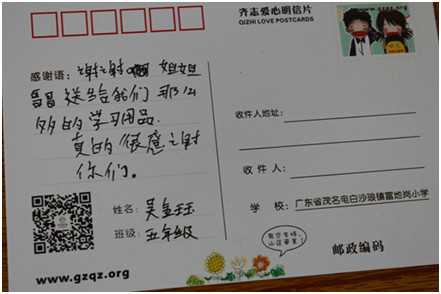 齐志爱心明信片
QIZHI LOVE POSTCARDS
www.gzqz.org
感谢语:谢谢 姐姐
哥哥送给我们那么
多的学习用品.
真的很感谢
你们。
收件人地址:
收 件 人:
学 校:广东省茂名电白沙琅镇富地岗小学
姓名:吴金珏
班级:五年级
有您支持,
山区更美!
邮政编码
www.gzqz.org